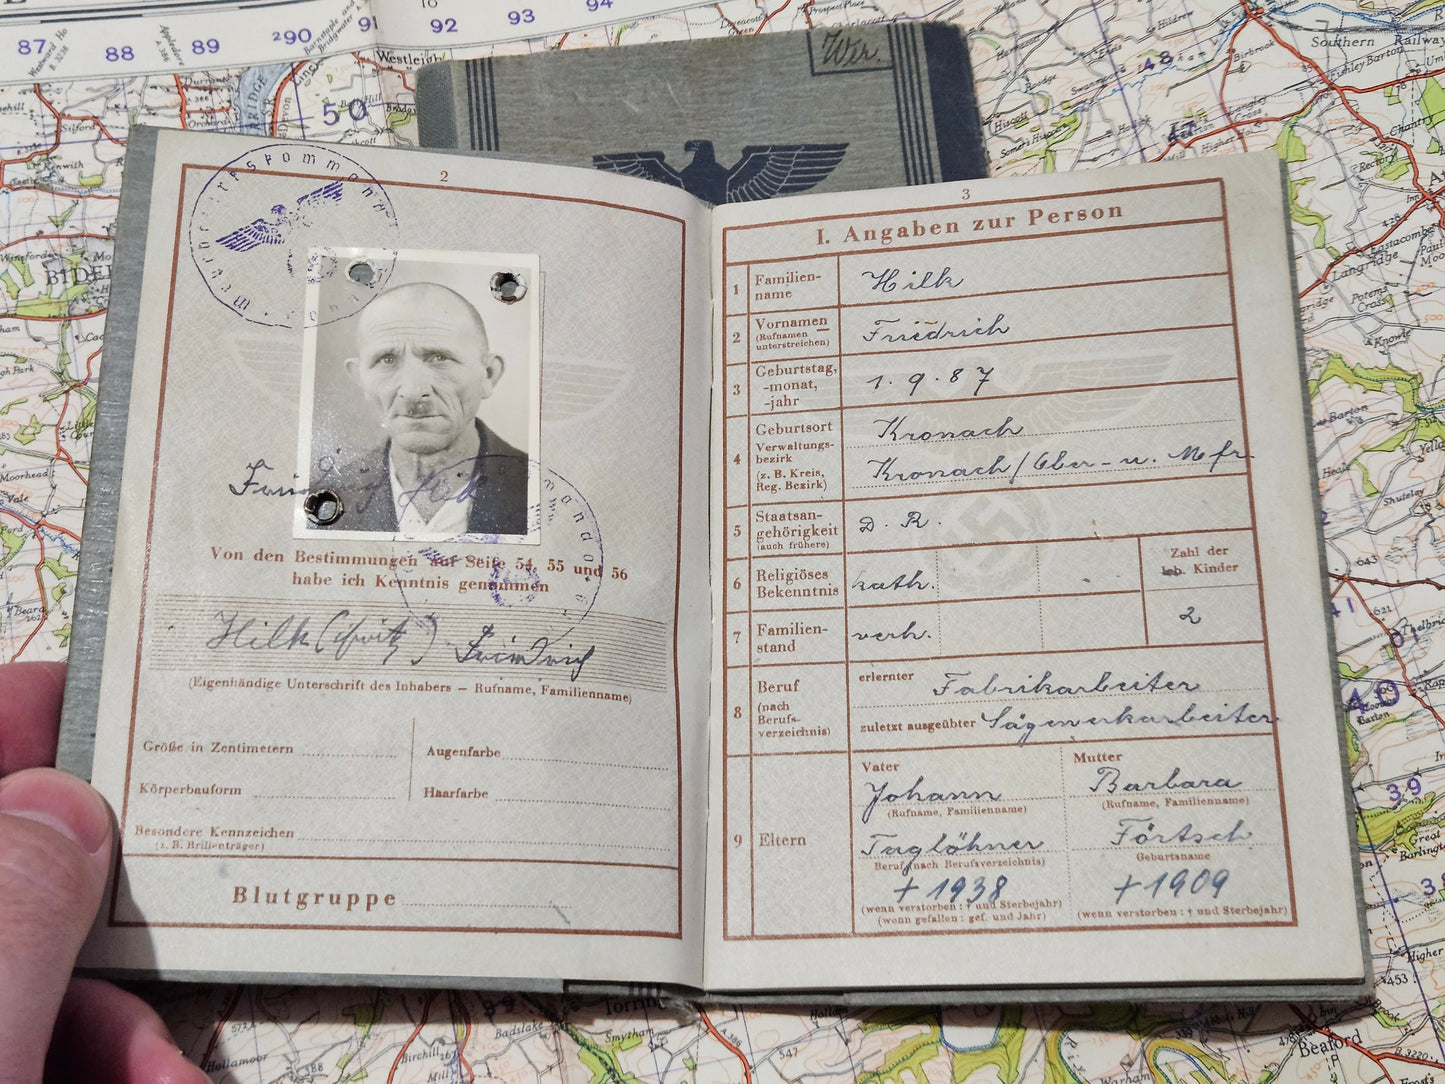 87
88
89
290
91
92
93
94
10
Westleigh
50
Silford
Kenwith
Wer.
48
Southern Railway
Hiscott
Birbrook
Wehrbezirkskommando
2
Friedrich Hilk
Von den Bestimmungen auf Seite 54, 55 und 56
habe ich Kenntnis genommen
Hilk (Fritz) Friedrich
(Eigenhändige Unterschrift des Inhabers – Rufname, Familienname)
Größe in Zentimetern
Augenfarbe
Körperbauform
Haarfarbe
Besondere Kennzeichen
(z. B. Brillenträger)
Blutgruppe
3
I. Angaben zur Person
1 Familien-
name
Hilk
2 Vornamen
(Rufnamen
unterstreichen)
Friedrich
3 Geburtstag,
-monat,
-jahr
1. 9. 87
4 Geburtsort
Verwaltungs-
bezirk
(z. B. Kreis,
Reg. Bezirk)
Kronach
Kronach/Ober- u. Mfr.
5 Staatsan-
gehörigkeit
(auch frühere)
D. R.
6 Religiöses
Bekenntnis
kath.
Zahl der
leb. Kinder
7 Familien-
stand
verh.
2
8 Beruf
(nach
Berufs-
verzeichnis)
erlernter Fabrikarbeiter
zuletzt ausgeübter Sägewerkarbeiter
9 Eltern
Vater
Johann
(Rufname, Familienname)
Taglöhner
Beruf (nach Berufsverzeichnis)
+ 1938
(wenn verstorben: † und Sterbejahr)
(wenn gefallen: gef. und Jahr)
Mutter
Barbara
(Rufname, Familienname)
Förtsch
Geburtsname
+ 1909
(wenn verstorben: † und Sterbejahr)
Moorhead
Barton
Shutelay
Knowle
40
39
Badslake
Smytham
Birchill
Hollamoor
547
388
Beaford
453